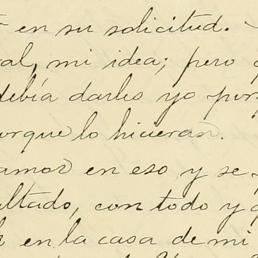 en su solicitud.
al, mi idea; pero
debía darles yo por
orque lo hicieran.
amor en eso y se
ultado, con todo y
en la casa de mi